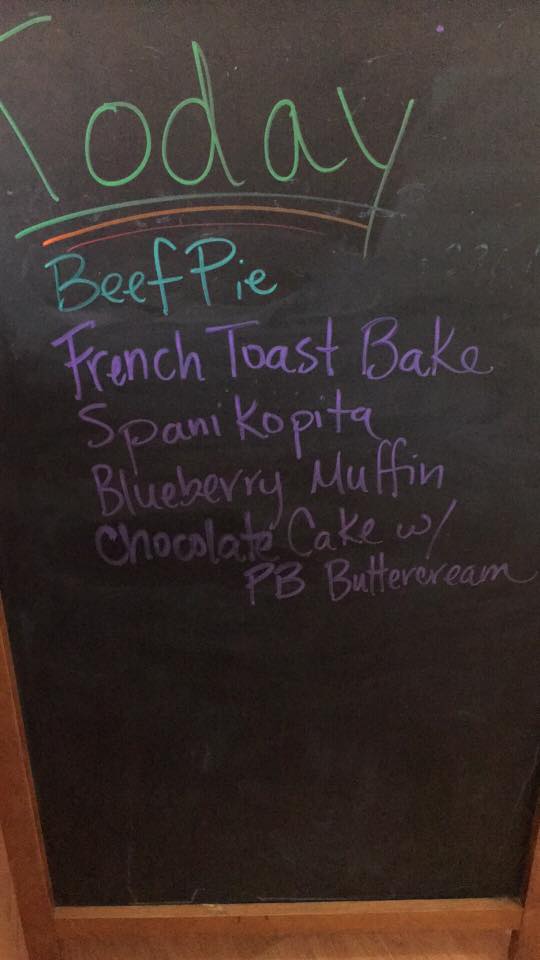 Today
Beef Pie
French Toast Bake
Spanikopita
Blueberry Muffin
Chocolate Cake w/
PB Buttercream